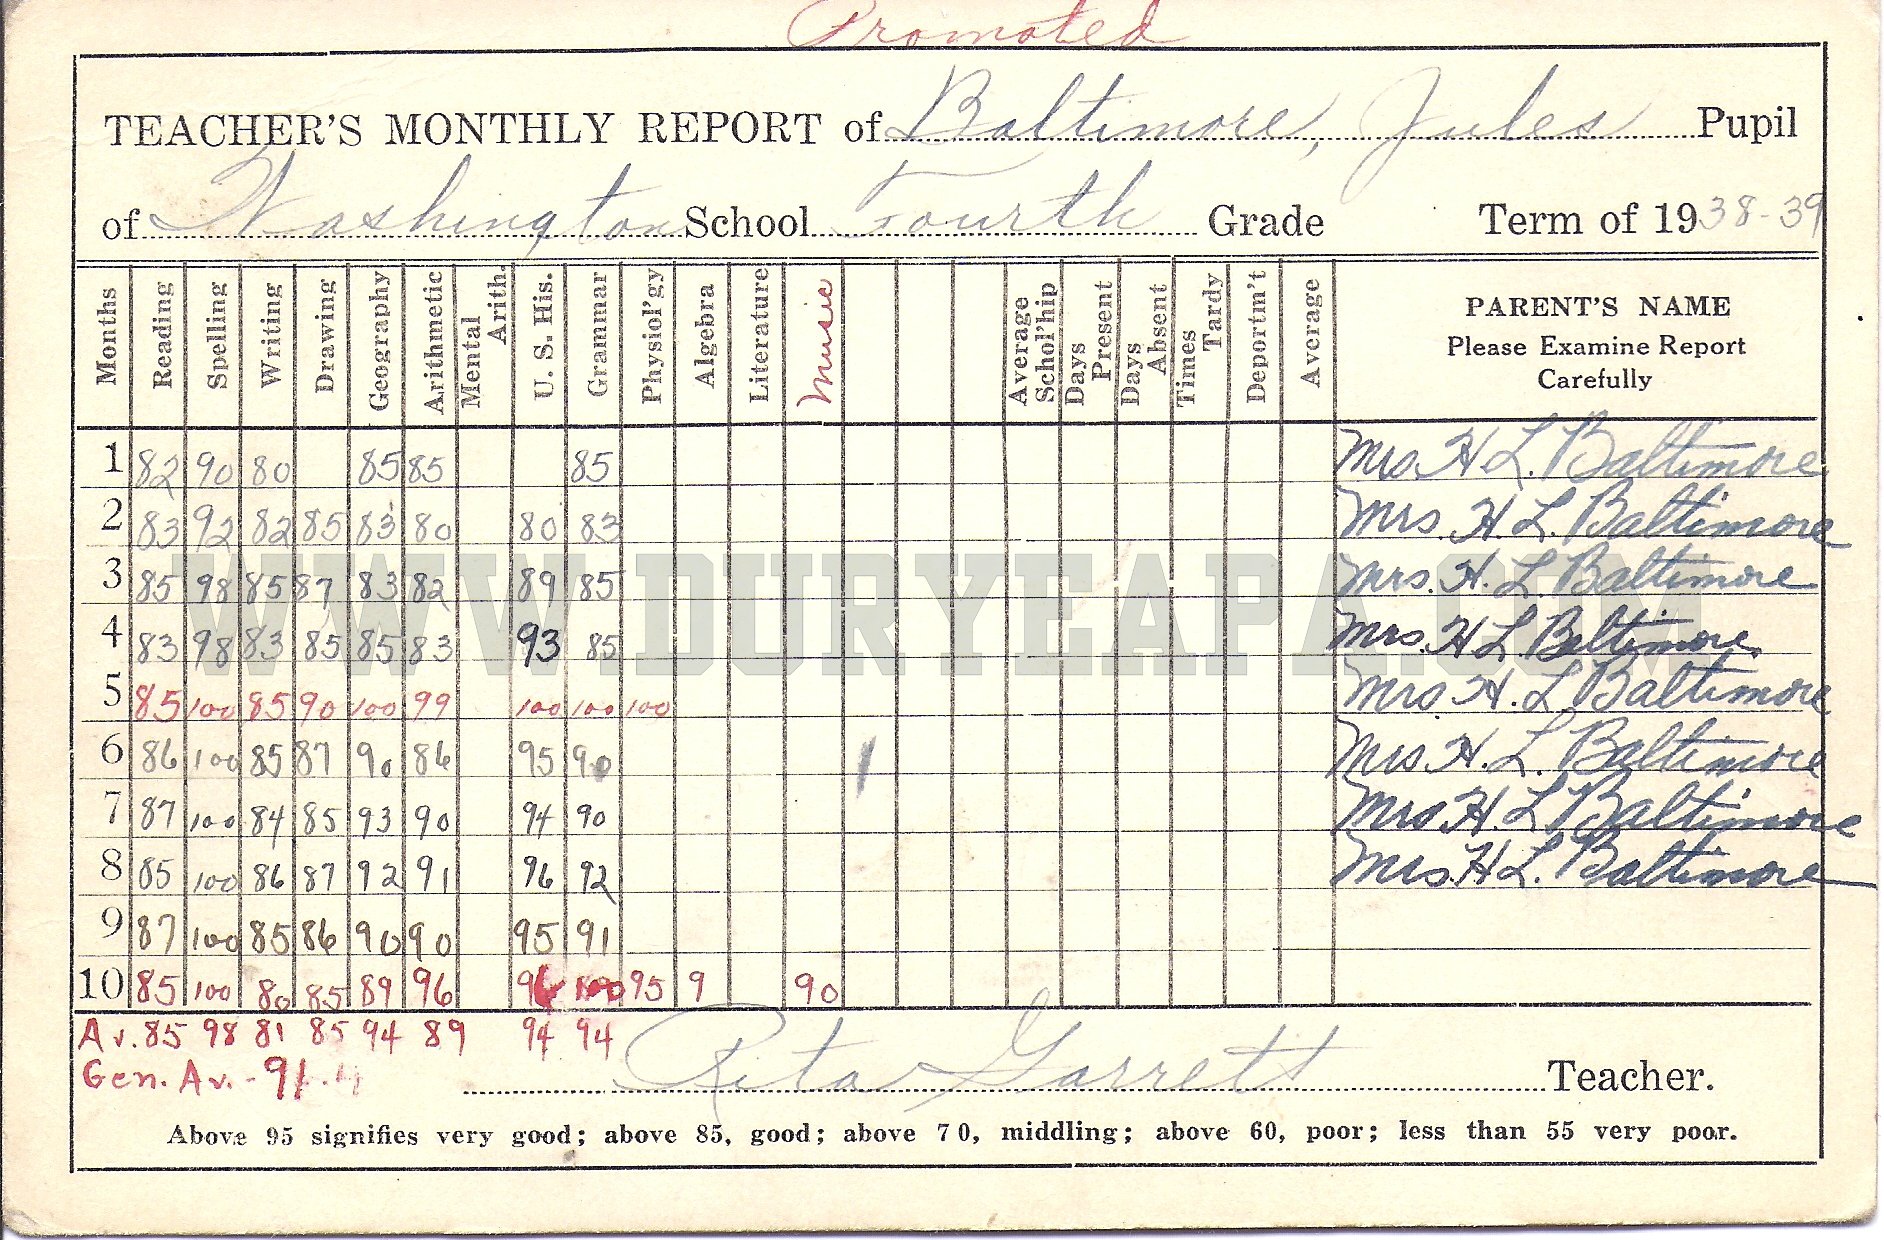 Promoted
TEACHER'S MONTHLY REPORT of Baltimore, Jules Pupil
of Washington School Fourth Grade Term of 1938-39
Months Reading Spelling Writing Drawing Geography Arithmetic Mental Arith. U. S. His. Grammar Physiol'gy Algebra Literature Music Average Schol'hip Days Present Days Absent Times Tardy Deportm't Average PARENT'S NAME
Please Examine Report
Carefully
1 82 90 80 85 85 85 Mrs. H L. Baltimore
2 83 92 82 85 83 80 80 83 Mrs. H. L. Baltimore
3 85 98 85 87 83 82 89 85 Mrs. H. L Baltimore
4 83 98 83 85 85 83 93 85 Mrs. H L Baltimore
5 85 100 85 90 100 99 100 100 100 Mrs. H. L Baltimore
6 86 100 85 87 90 86 95 90 Mrs. H. L. Baltimore
7 87 100 84 85 93 90 94 90 Mrs H. L Baltimore
8 85 100 86 87 92 91 96 92 Mrs. H L. Baltimore
9 87 100 85 86 90 90 95 91
10 85 100 80 85 89 96 95 9 90
Av. 85 98 81 85 94 89 94 94
Gen. Av. - 91.
Rita Garrett Teacher.
Above 95 signifies very good; above 85, good; above 70, middling; above 60, poor; less than 55 very poor.
WWW.DURYEAPA.COM